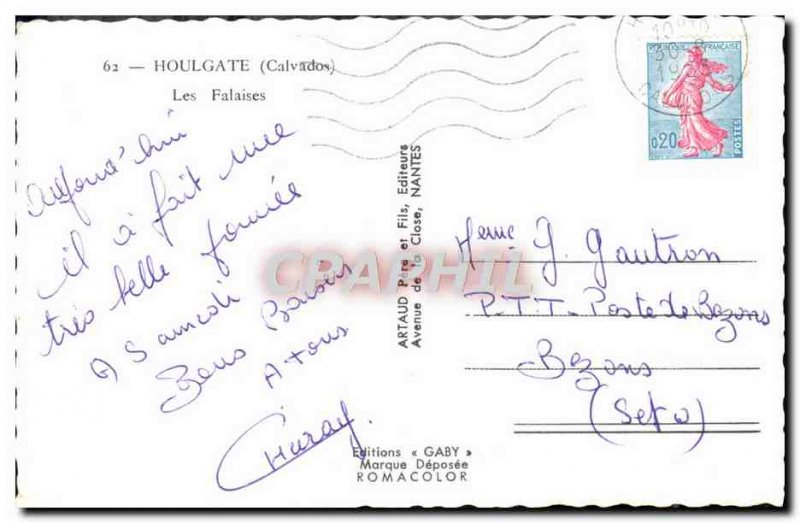 62 — HOULGATE (Calvados)
Les Falaises
Aujourd'hui
il a fait une
très belle journée
A Samedi
Bons Baisers
A tous
ARTAUD Père et Fils, Editeurs
Avenue de la Close, NANTES
REPUBLIQUE FRANÇAISE
0,20
POSTES
Meme G. Gautron
P.T.T. Poste de Bezons
Bezons
(Set O)
Editions « GABY »
Marque Déposée
ROMACOLOR
CPARPHIL